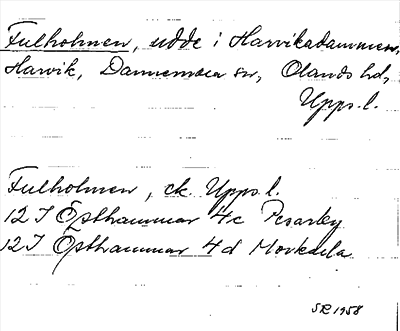 Fulholmen, udde i Harvikadammen,
Harvik, Dannemora sn, Olands hd,
Upps. l.
Fulholmen, ek. Upps. l.
12 I Östhammar 4c Pesarby
12 I Östhammar 4d Morkdela
SR 1958